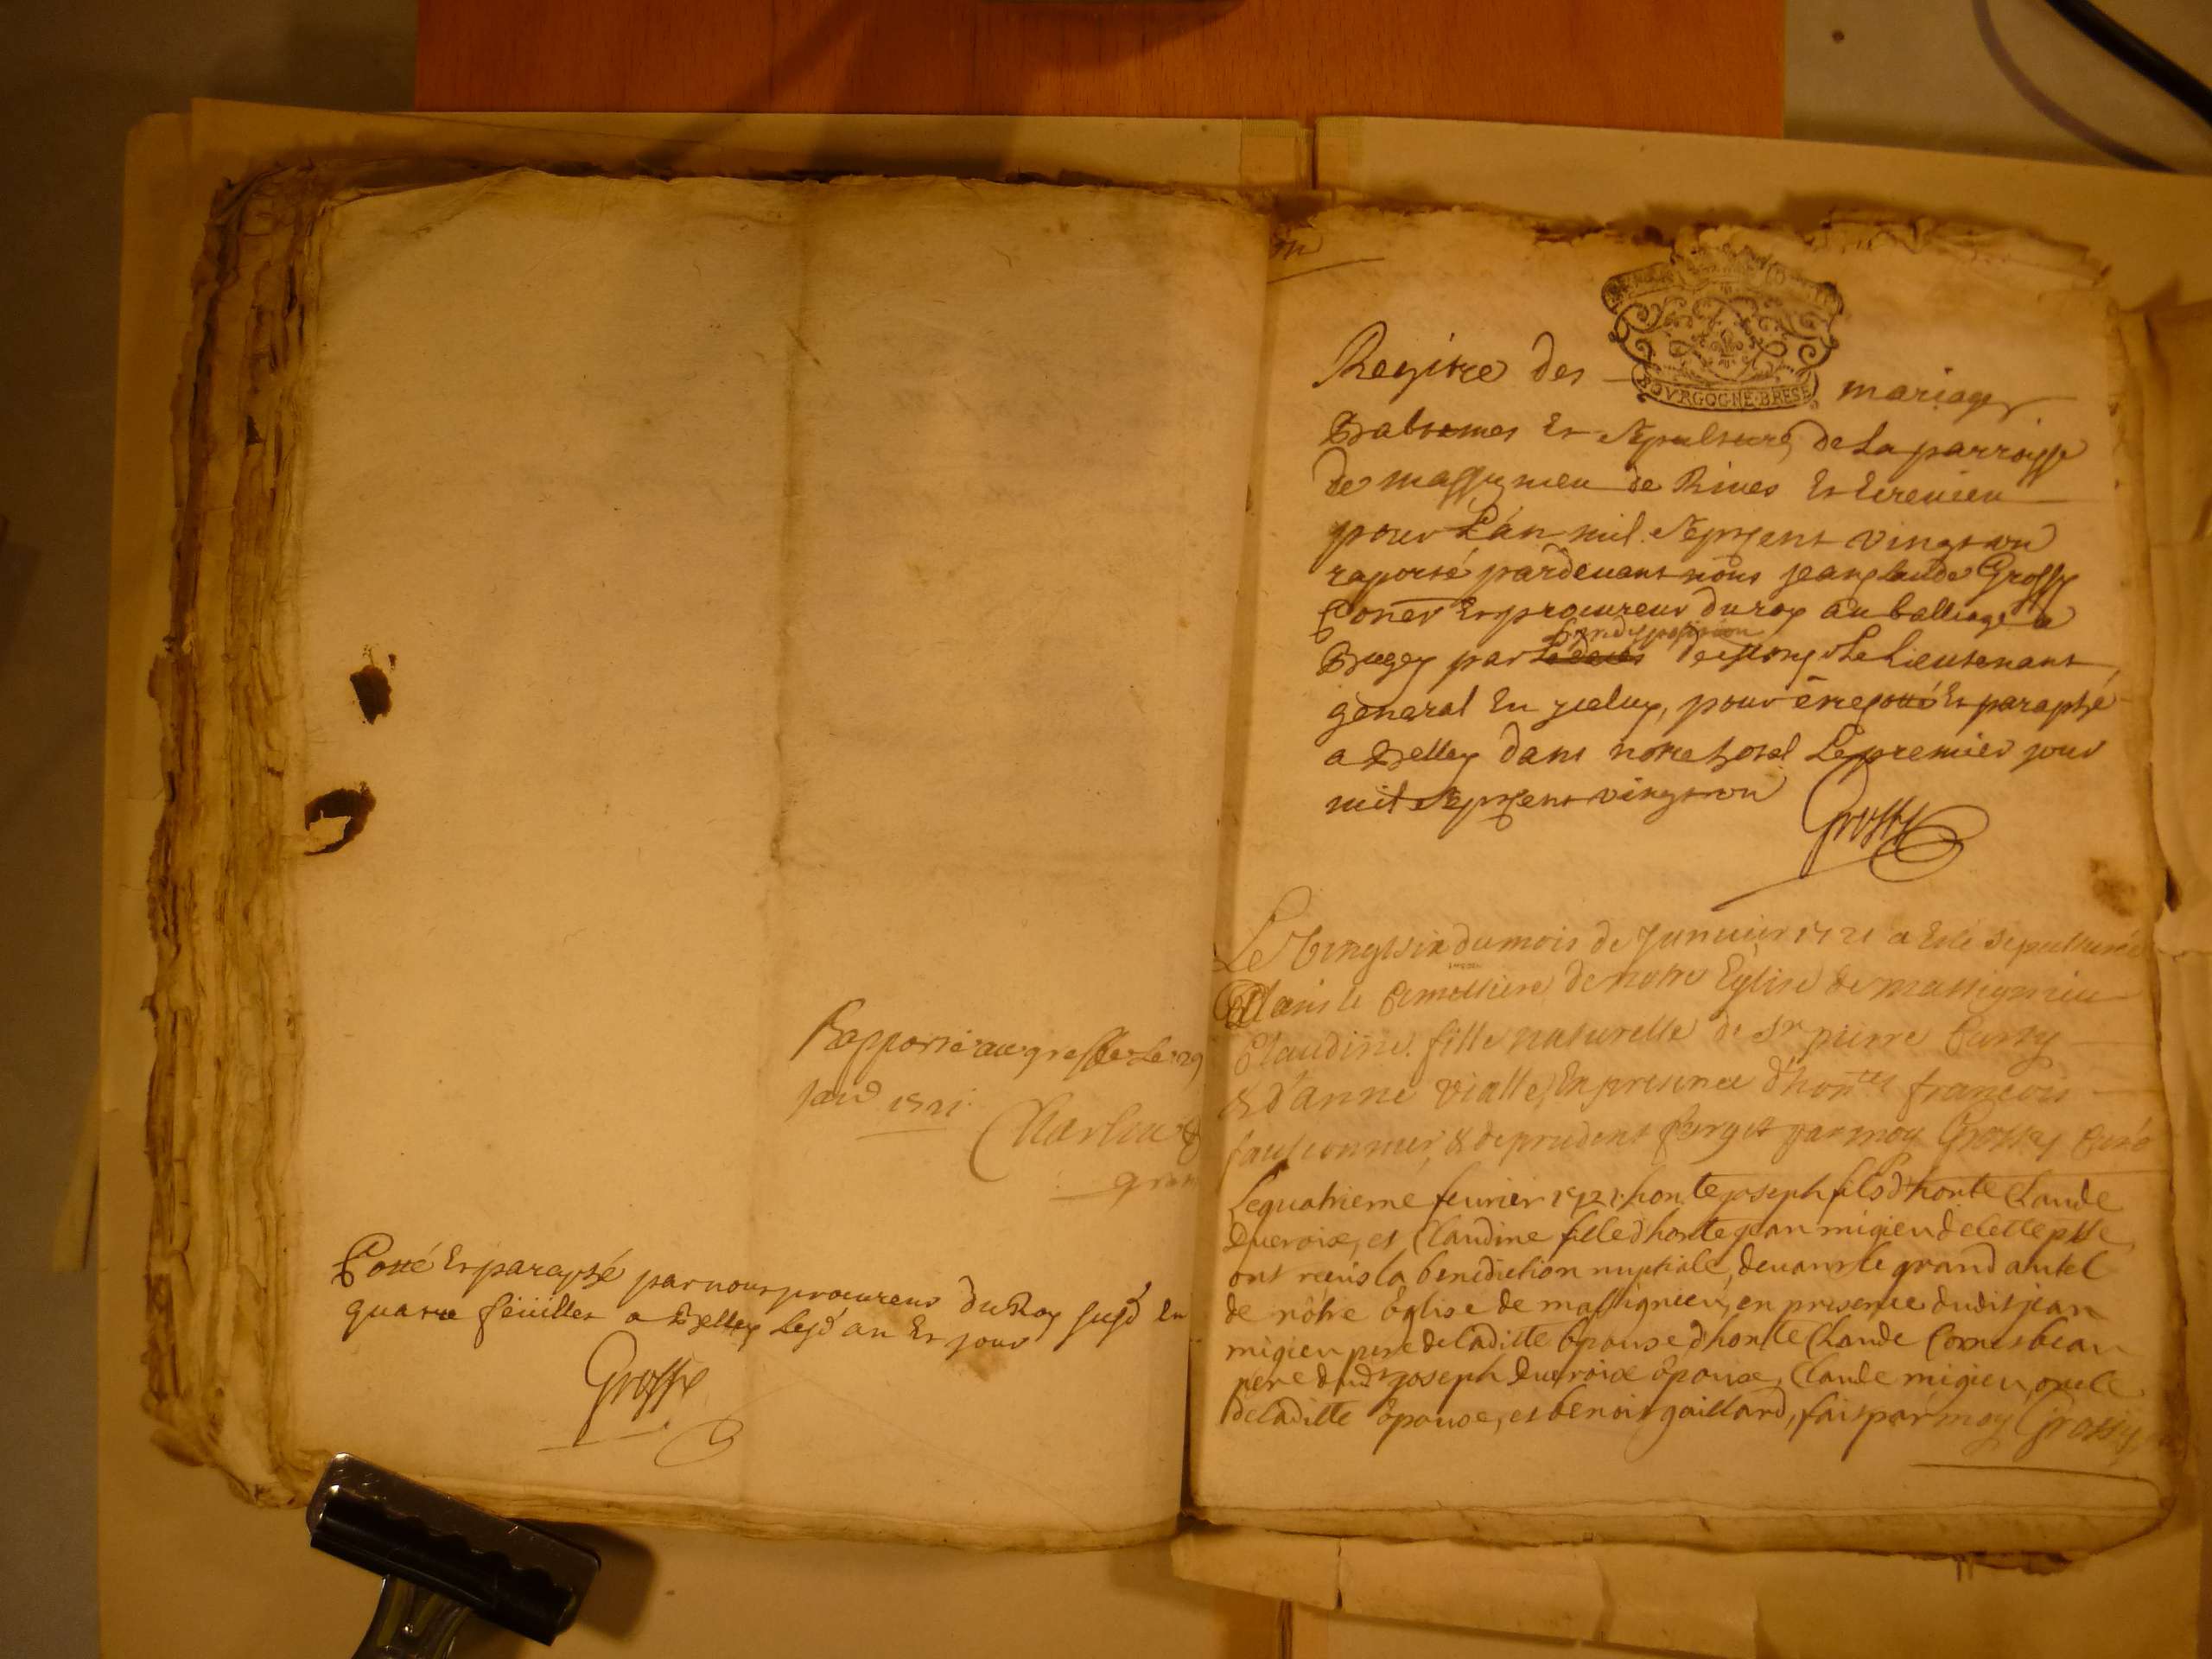 Rapporté au greffe Le 29
Janr 1721.
Charlin
Cotté Et paraphé par nous procureur Du Roy susd en
quatre feüilles a Belley Lesd an Et jour
Grossy
Regitre des mariages
BOVRGOGNE·BRESE
Babtemes Et Sepultures de La parroisse
de massignieu de Rives Et
pour L'an mil Septcent vingt un
raporté pardevant nous jean Claude Grossy
Coner Et procureur du roy au balliage de
la indisposition
Bugey par de mons.r Le Lieutenant
general En jceluy, pour être cotté Et paraphé
a Belley dans notre hotel Le premier jour
mil Septcent vingt un
Grossy
Le Vingt six du mois de Janvier 1721 a Esté Sepulturée
Dans le Cimettiere de notre Eglise de massignieu
Claudine fille naturelle de Sr pierre Curty
& d'anne vialle, En presence d'honte francois
fauconnier, & de prudent Berget par moy Grossy Curé
Le quatrieme fevrier 1721. honte joseph fils d'honte Claude
Ducroix, et Claudine fille d'honte jean migieu de cette psse
ont receus la benediction nuptiale, devant le grand autel
de nôtre Église de massignieu, en presence dudit jean
migieu pere de laditte Epouse d'honte Claude Cornet beau
pere dudt joseph Ducroix époux, Claude migieu oncle
de laditte épouse, et benoit gaillard, fait par moy Grossy